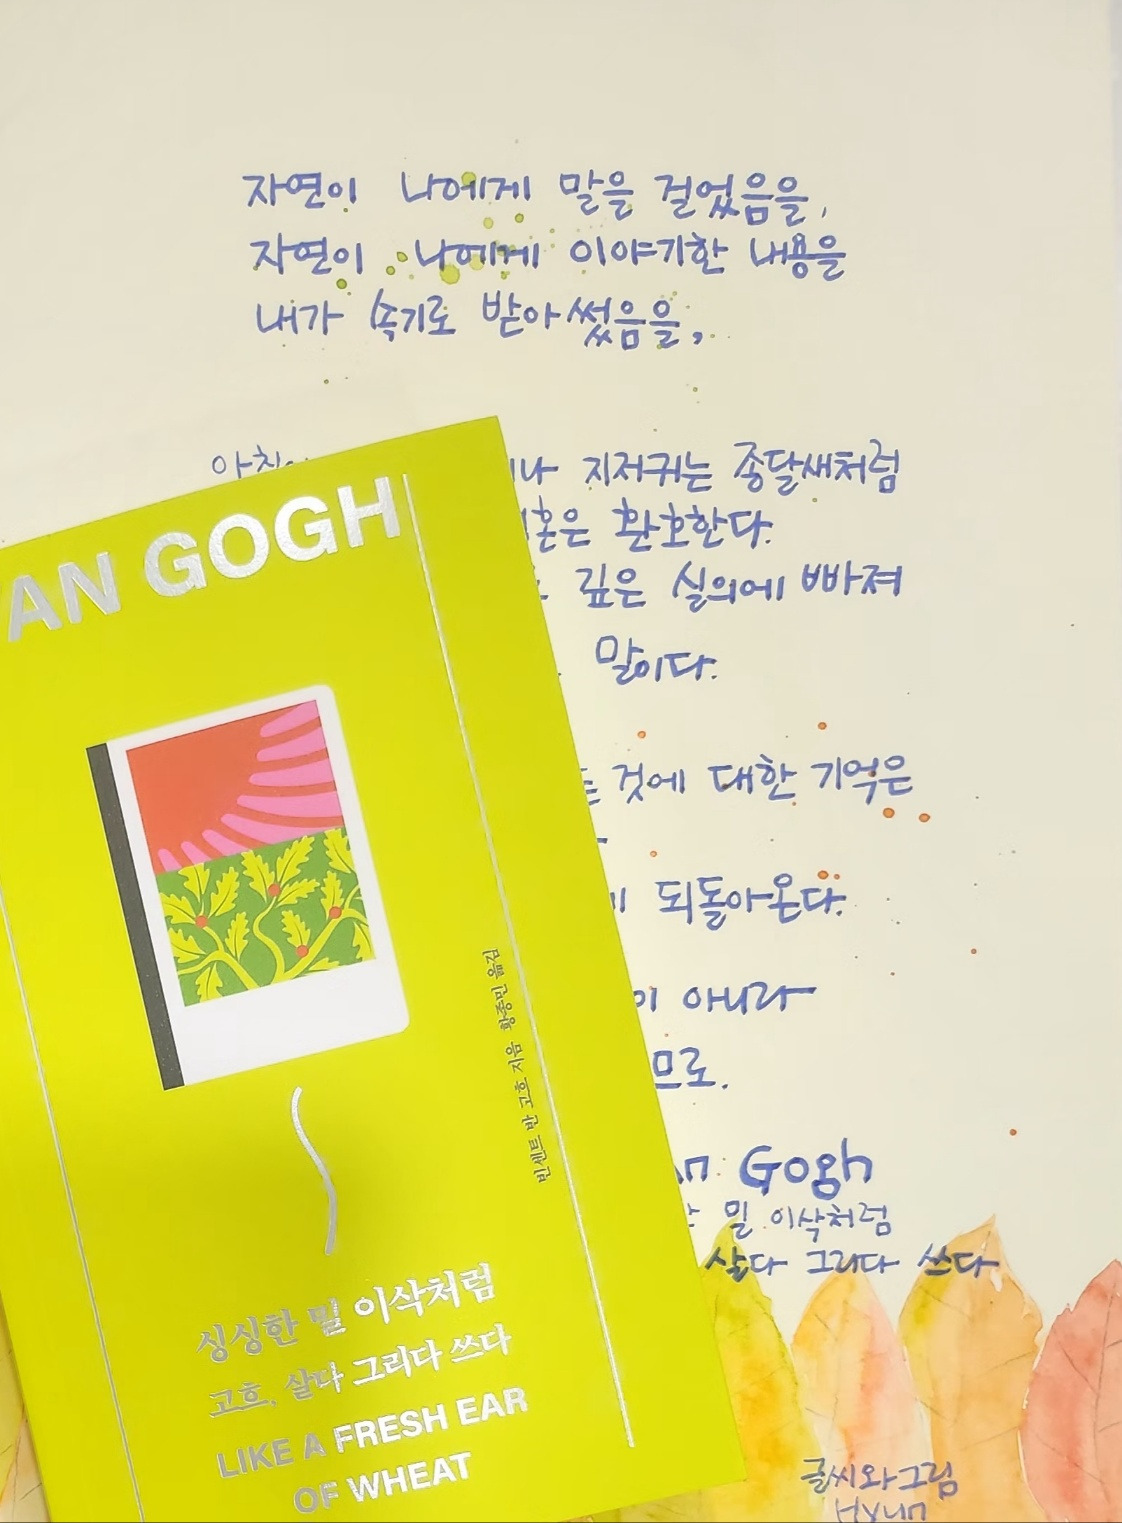 자연이 나에게 말을 걸었음을,
자연이 나에게 이야기한 내용을
내가 속기로 받아 썼음을,
지저귀는 종달새처럼
환호한다.
깊은 실의에 빠져
말이다.
것에 대한 기억은
되돌아온다.
아니라
Gogh
밀 이삭처럼
살다 그리다 쓰다
글씨와그림
Hyun
VAN GOGH
빈센트 반 고흐 지음 황종민 옮김
싱싱한 밀 이삭처럼
고흐, 살다 그리다 쓰다
LIKE A FRESH EAR
OF WHEAT